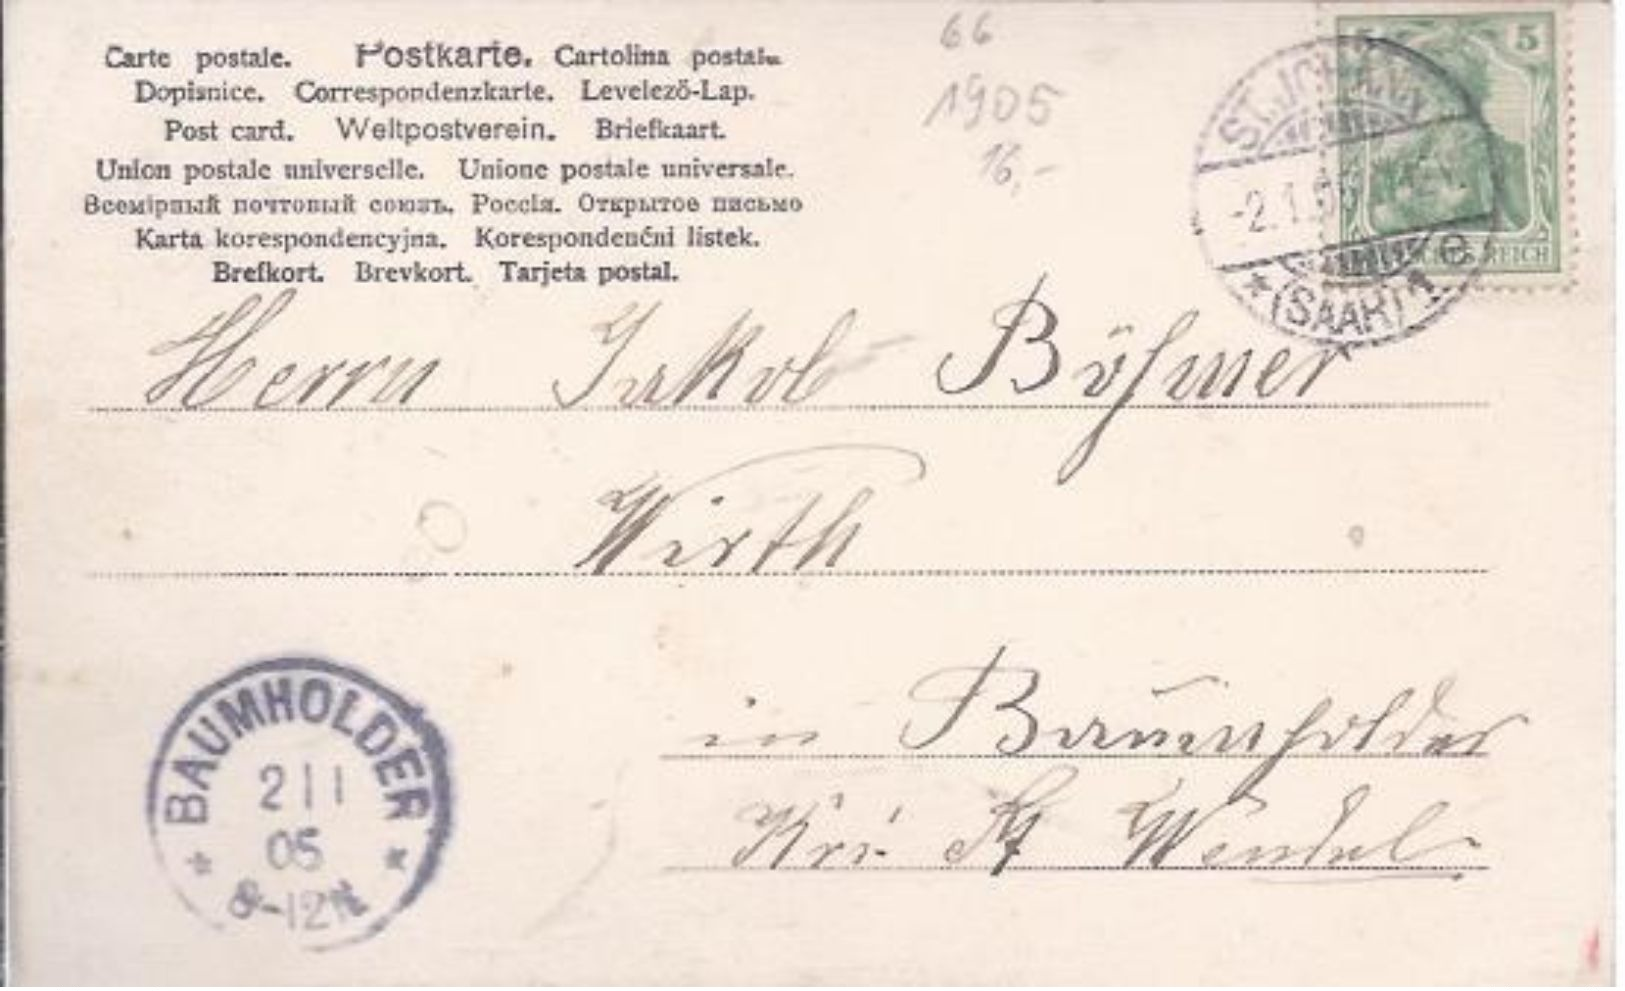 Carte postale. Postkarte. Cartolina postale.
Dopisnice. Correspondenzkarte. Levelező-Lap.
Post card. Weltpostverein. Briefkaart.
Union postale universelle. Unione postale universale.
Всемірный почтовый союзъ. Россія. Открытое письмо
Karta korespondencyjna. Korespondenční listek.
Brefkort. Brevkort. Tarjeta postal.
66
1905
16,-
5
ST. JOHANN
-2.1.05
(SAAR) 1 e
REICH
Herrn Jakob Böhmer
Wirth
in Baumholder
Kri. St Wendel
BAUMHOLDER
2 | 1
05
8-12N